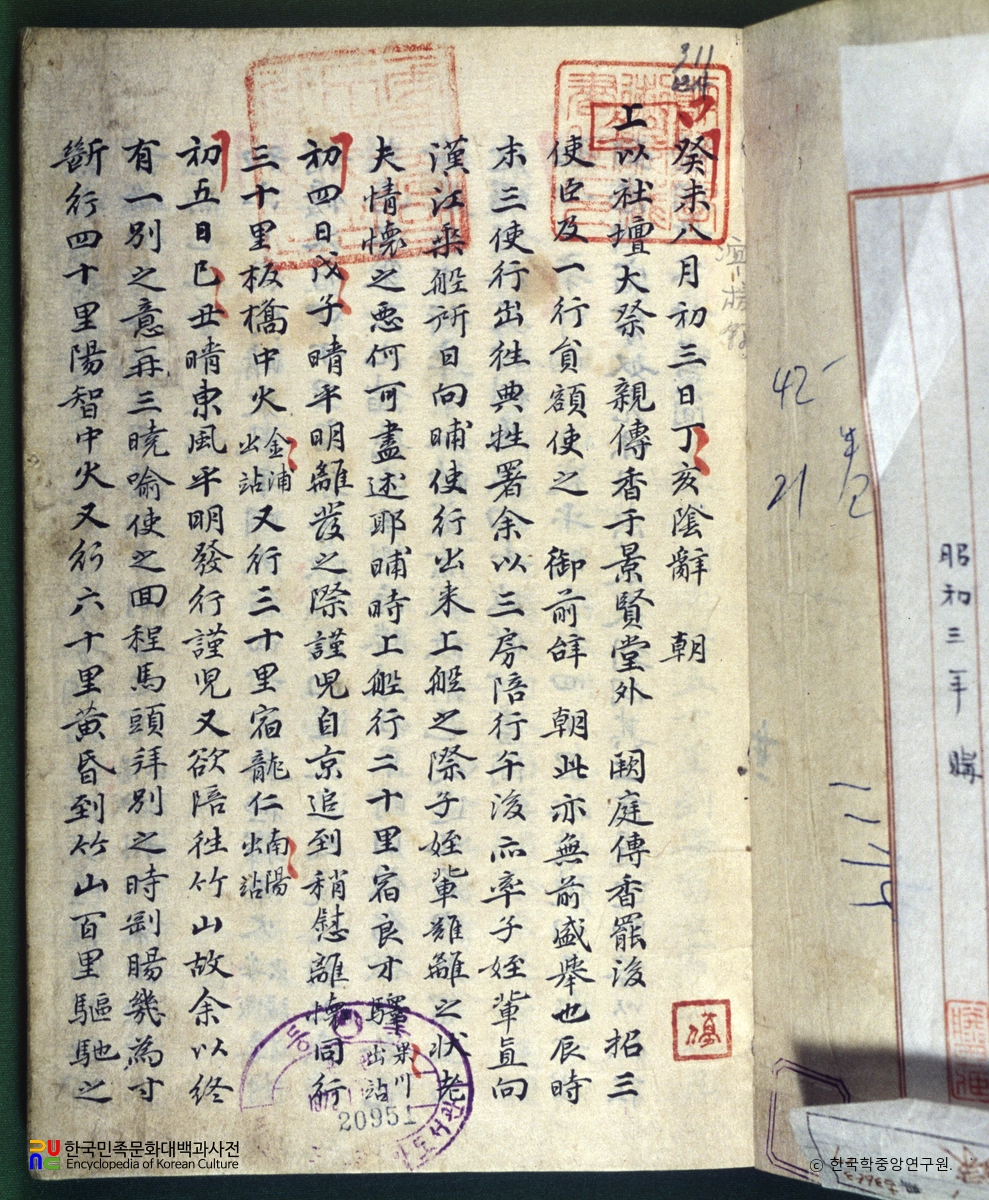 癸未八月初三日丁亥陰辭 朝
上以社壇大祭親傳香于景賢堂外 闕庭傳香罷後 招三
使臣及一行貟額使之 御前辞 朝此亦無前盛舉也辰時
末三使行出徃典牲署余以三房陪行午後亦率子姪軰直向
漢江乘舩所日向晡使行出来上舩之際子姪軰難離之狀老
夫情懷之悪何可盡述耶晡時上舩行二十里宿良才驛果川出站
初四日戊子晴平明離發之際謹児自京追到稍慰離懷同行
三十里板橋中火金浦出站又行三十里宿龍仁南陽出站
初五日己丑晴東風平明發行謹児又欲陪徃竹山故余以終
有一別之意再三曉喻使之回程馬頭拜別之時剛腸幾為寸
斷行四十里陽智中火又行六十里黃昏到竹山百里驅馳之
20951
42
21
昭和三年 購
한국민족문화대백과사전
Encyclopedia of Korean Culture
© 한국학중앙연구원.